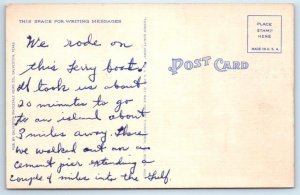 THIS SPACE FOR WRITING MESSAGES
We rode on
this ferry boat.
It took us about
20 minutes to go
to an island about
3 miles away. There
we walked out on a
cement pier extending a
couple of miles into the Gulf.
POST CARD
PLACE
STAMP
HERE
MADE IN U.S.A.